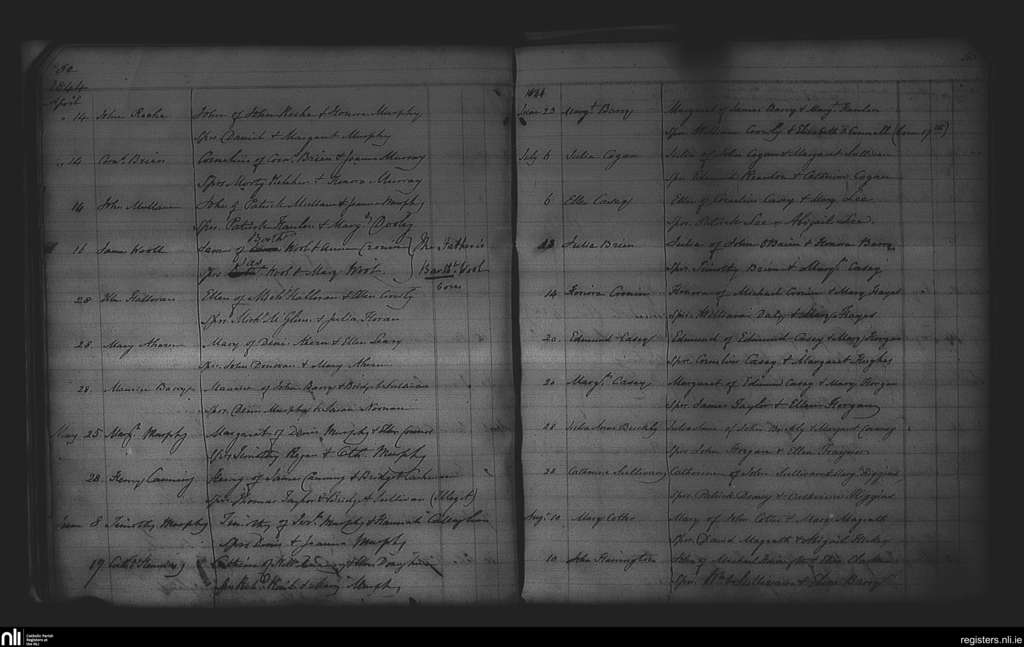 50
1844
April
14 John Roche John of John Roche & Honora Murphy
Sprs Daniel & Margaret Murphy
14 Corns. Brien Cornelius of Corns. Brien & Joanna Murray
Sprs Morty Kelleher & Honora Murray
14 John Mullane John of Patrick Mullane & Joanna Murphy
Sprs. Patrick Hanlon & Margt Dooly
16
Wool & Mary Wool
The Father is
Bartt. Wool
28 Ellen Halloran Ellen of Michl. Halloran & Ellen
Sprs. Michl. McGlinn & Julia Horan
28 Mary Ahern Mary of Denis Ahern & Ellen Leary
Sprs. John Donovan & Mary Ahern
28. Maurice Barry Maurice of John Barry & Bridgt. Sullivan
Sprs. Denis Murphy & Noonan
May 25 Margt. Murphy Margaret of Denis Murphy & Ellen Connor
Sprs Timothy Regan & Cath. Murphy
28. Henry Canning Henry of James Canning & Bridget
Spr. Thomas Taylor & Bridgt. Sullivan
June 8 Timothy Murphy Timothy of Murphy & Hannah Callaghan
Sprs Denis & Joanna Murphy
19 Catherine of
Murphy
1844
June 23 Margt. Barry Margaret of James Barry & Margt. Hanlon
Spr William & Elizabeth O'Connell (born 19th)
July 6 Julia Cogan Julia of John Cogan & Margaret Sullivan
Spr. Edmund Reardon & Catherine Cogan
6 Ellen Casey Ellen of Cornelius Casey & Mary Lee
Spr. Patrick Lee & Abigail Lee
13 Julia Brien Julia of John O'Brien & Honora Barry
Spr. Timothy Brien & Margt. Casey
14 Honora Cronin Honora of Michael Cronin & Mary Hayes
Spr. William Daly & Mary Hayes
20. Edmund Casey Edmund of Edmund Casey & Mary Horgan
Spr. Cornelius Casey & Margaret Hughes
20 Margt. Casey Margaret of Edmund Casey & Mary Horgan
Spr. James Taylor & Ellen Horgan
28 Julia Anne Buckly Julia Anne of John Buckly & Margaret Casey
Spr John Horgan & Ellen
28 Catherine Sullivan Catherine of John Sullivan & Mary Higgins
Spr. Patrick & Catherine Higgins
Augt. 10 Mary Cotter Mary of John Cotter & Mary Magrath
Spr. David Magrath & Abigail
10 John Harrington John of Michael Harrington & Ellen
Spr. Wm. Sullivan & Ellen Barry
nli
Catholic Parish
Registers at
the NLI
registers.nli.ie